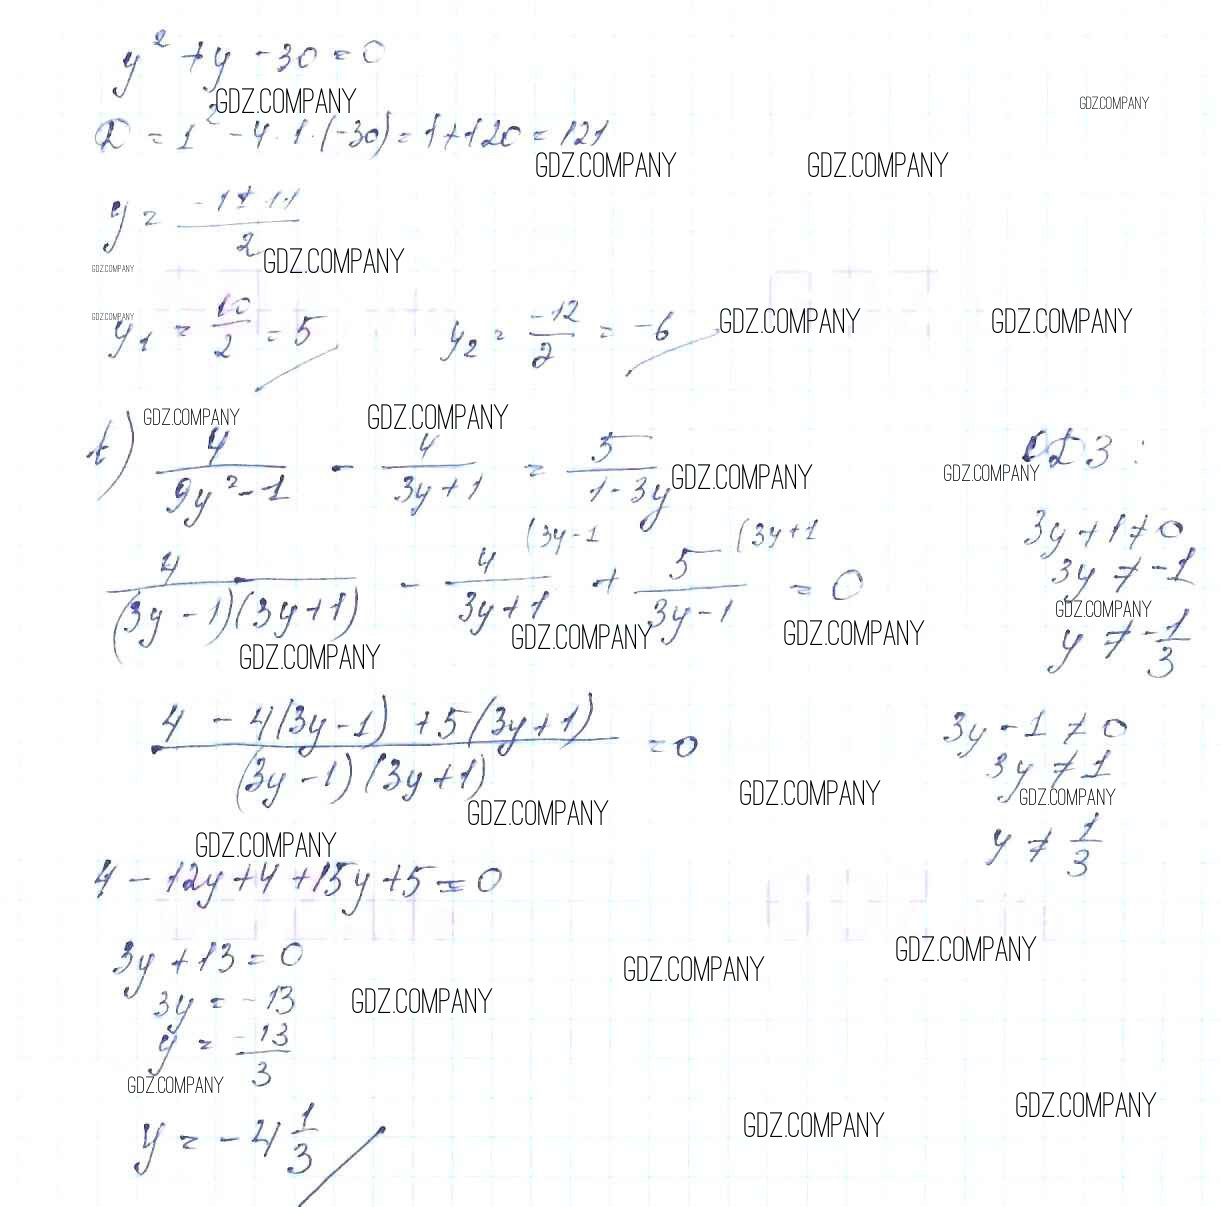 y² + y - 30 = 0
GDZ.COMPANY
GDZ.COMPANY
D = 1² - 4 · 1 · (-30) = 1 + 120 = 121
GDZ.COMPANY GDZ.COMPANY
y = (-1 ± 11)/2
GDZ.COMPANY
GDZ.COMPANY
GDZ.COMPANY
y₁ = 10/2 = 5 y₂ = -12/2 = -6
GDZ.COMPANY GDZ.COMPANY
GDZ.COMPANY GDZ.COMPANY
4/(9y² - 1) - 4/(3y + 1) = 5/(1 - 3y)
ОДЗ:
GDZ.COMPANY GDZ.COMPANY
3y + 1 ≠ 0
3y ≠ -1
GDZ.COMPANY
y ≠ -1/3
4/((3y - 1)(3y + 1)) - 4/(3y + 1) (3y - 1 + 5/(3y - 1) (3y + 1 = 0
GDZ.COMPANY GDZ.COMPANY GDZ.COMPANY
(4 - 4(3y - 1) + 5(3y + 1))/((3y - 1)(3y + 1)) = 0
3y - 1 ≠ 0
3y ≠ 1
GDZ.COMPANY
y ≠ 1/3
GDZ.COMPANY GDZ.COMPANY
GDZ.COMPANY
4 - 12y + 4 + 15y + 5 = 0
3y + 13 = 0
GDZ.COMPANY GDZ.COMPANY
3y = -13
GDZ.COMPANY
y = -13/3
GDZ.COMPANY
y = -4 1/3
GDZ.COMPANY GDZ.COMPANY